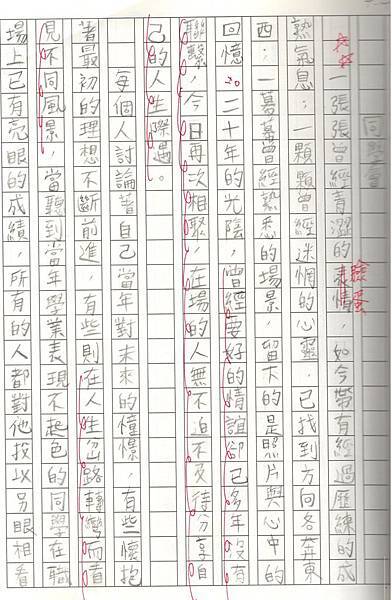 同學會
一張張曾經青澀的表情，如今帶有經過歷練的成
臉蛋
熟氣息；一顆顆曾經迷惘的心靈，已找到方向各奔東
西；一幕幕曾經熟悉的場景，留下的是照片與心中的
回憶。二十年的光陰，曾經要好的情誼卻已多年沒有
聯繫，今日再次相聚，在場的人無不迫不及待分享自
己的人生際遇。
每個人討論著自己當年對未來的憧憬，有些懷抱
著最初的理想不斷前進，有些則在人生岔路轉彎而看
見不同風景，當聽到當年學業表現不起色的同學在職
場上已有亮眼的成績，所有的人都對他投以另眼相看